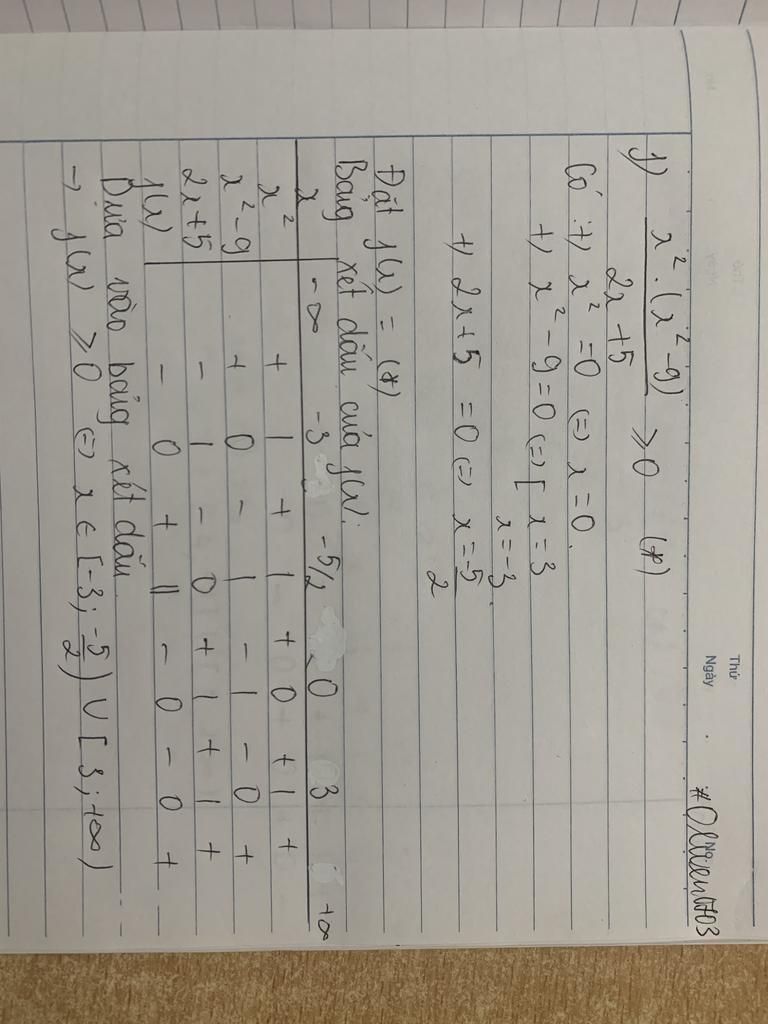 Thứ
Ngày
No.
#Olluen1703
1) x² . (x² - 9) / 2x + 5 ≥ 0 (*)
Có : +) x² = 0 (=) x = 0.
+) x² - 9 = 0 (=) [ x = 3
x = -3.
+) 2x + 5 = 0 (=) x = -5/2
Đặt f(x) = (*)
Bảng xét dấu của f(x):
x -∞ -3 -5/2 0 3 +∞
x² + | + | + 0 + | +
x² - 9 + 0 - | - | - 0 +
2x + 5 - | - 0 + | + | +
f(x) - 0 + || - 0 - 0 +
Dựa vào bảng xét dấu
→ f(x) ≥ 0 (=) x ∈ [-3; -5/2) ∪ [3; +∞)